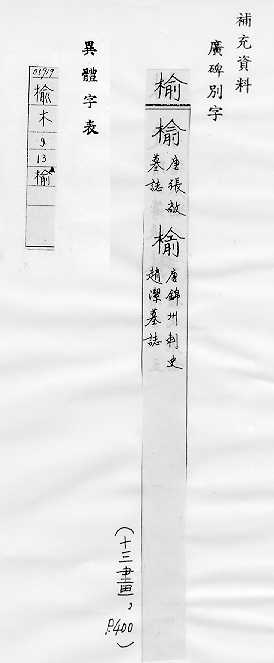 補充資料
廣碑別字
榆
榆 唐張敬墓誌
榆 唐錦州刺史趙潔墓誌
(十三畫,P.400)
異體字表
01919
榆
木
9
13
榆